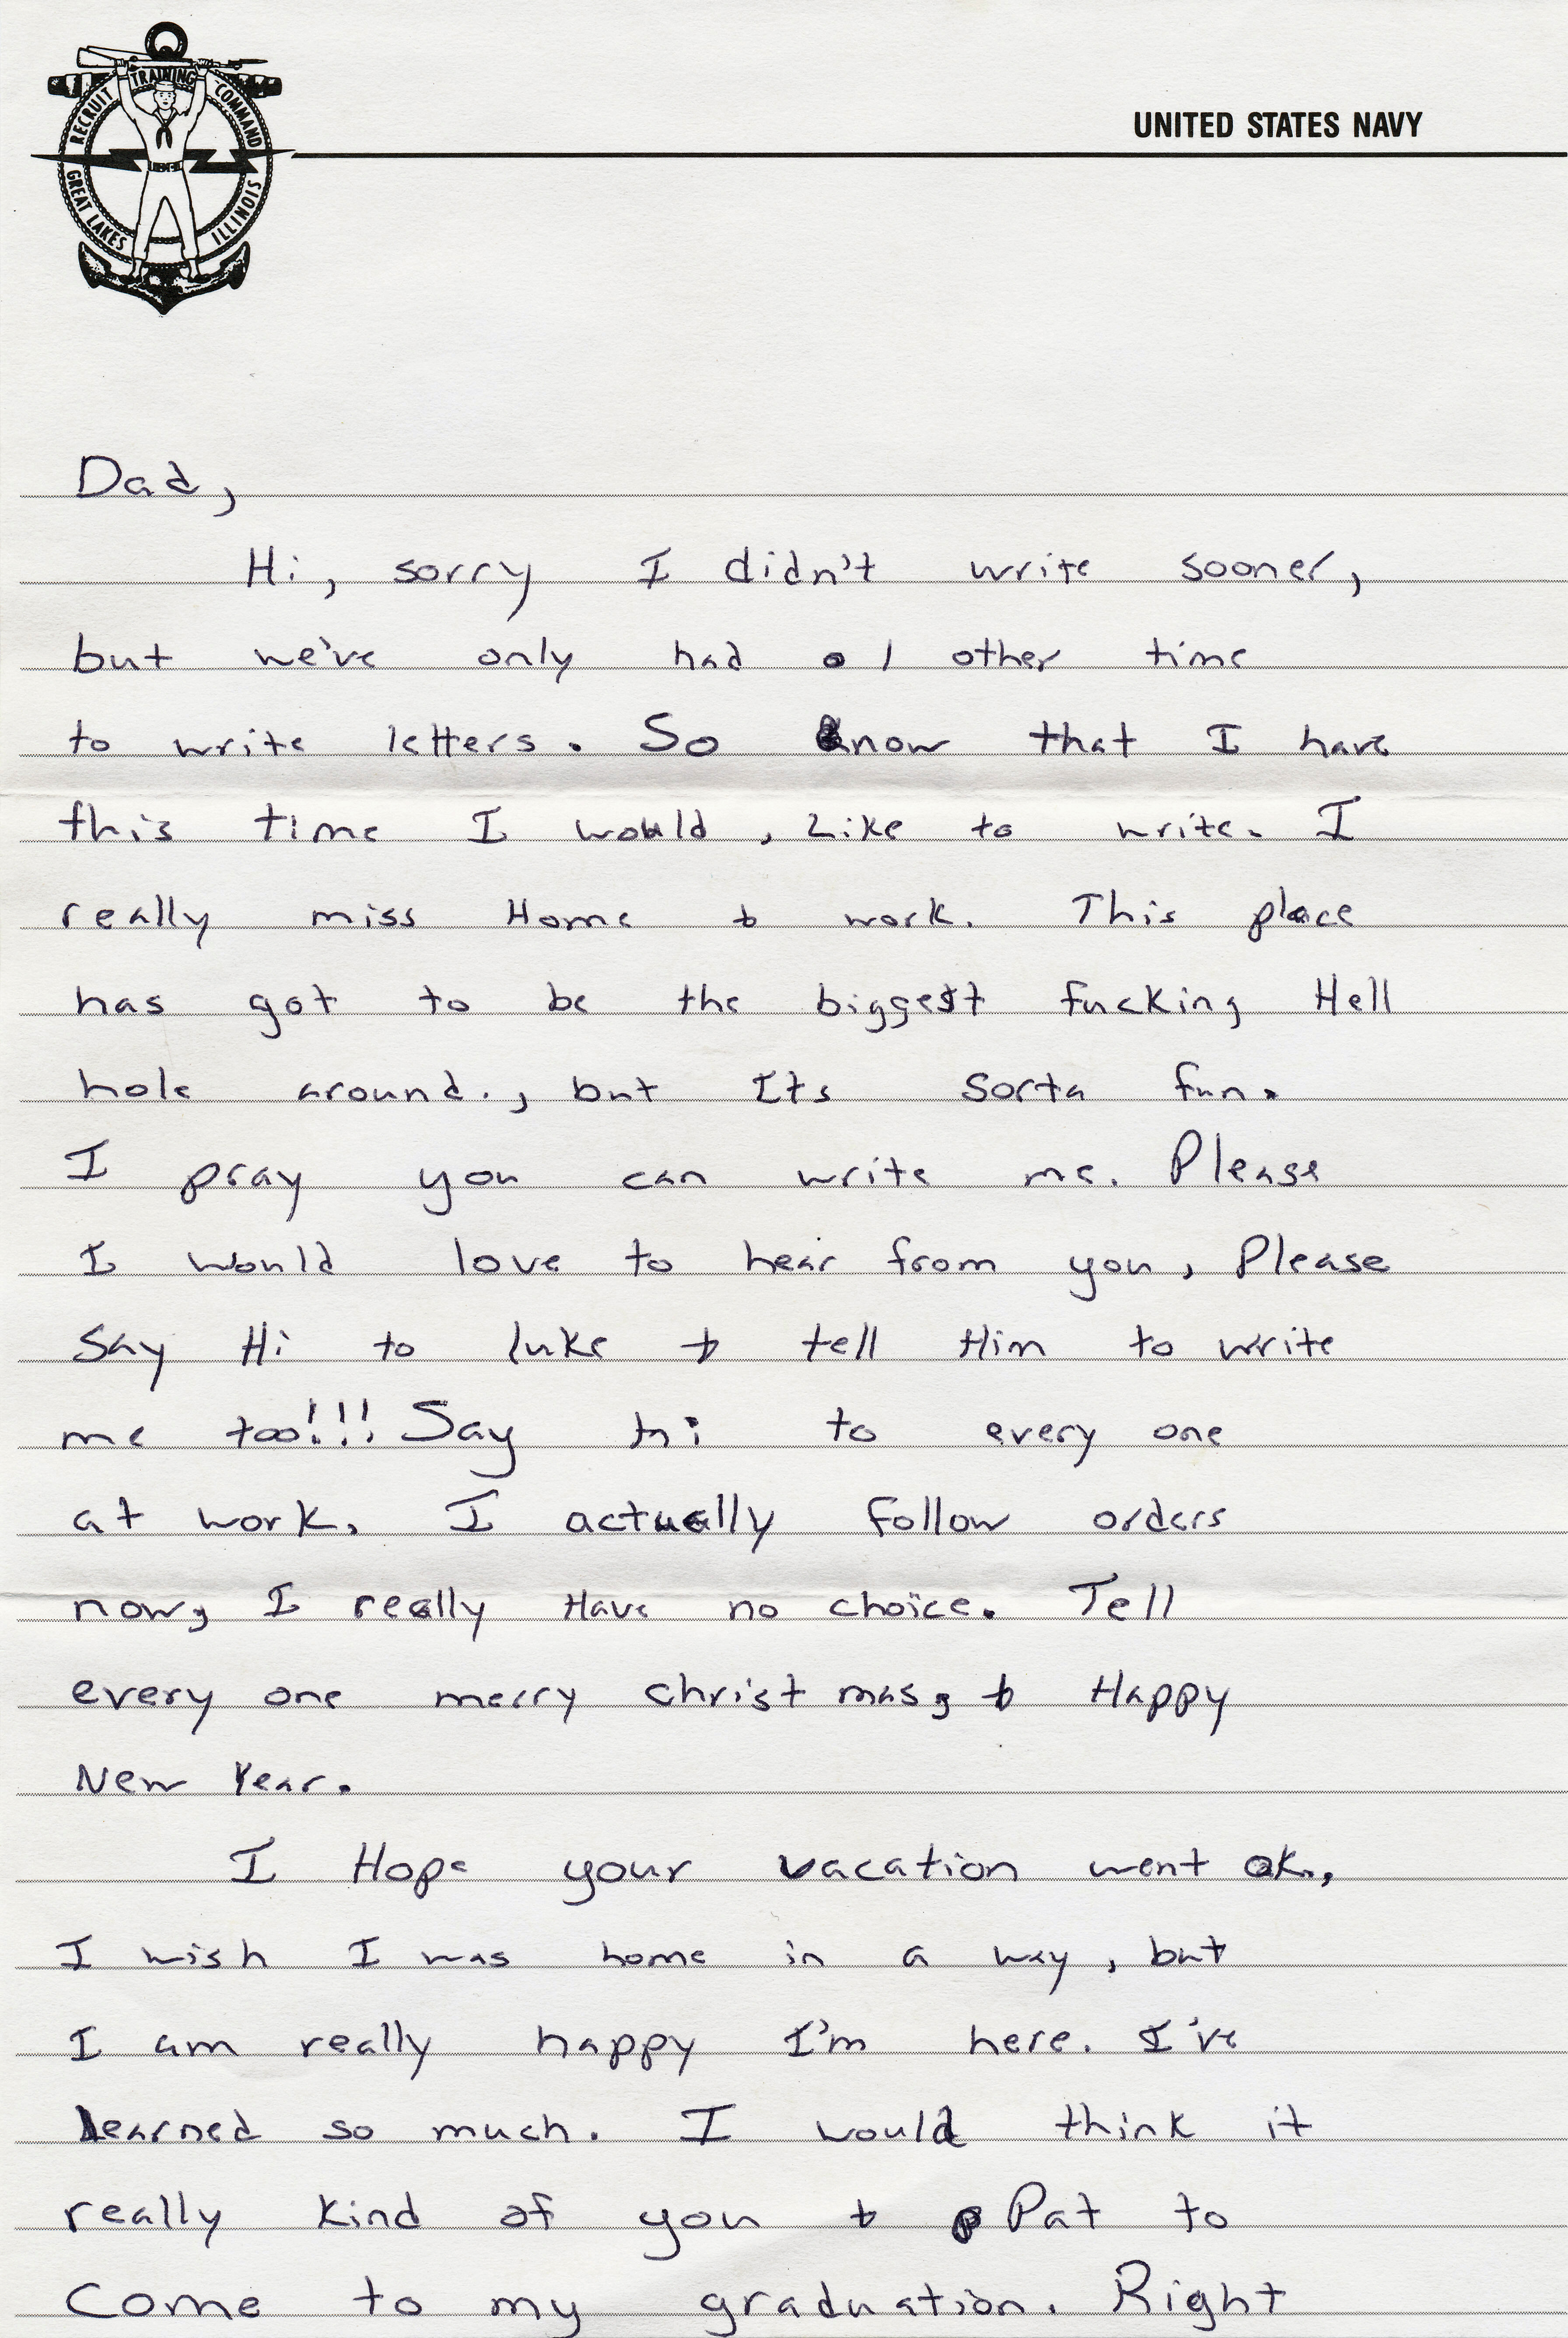 RECRUIT TRAINING COMMAND
GREAT LAKES ILLINOIS
UNITED STATES NAVY
Dad,
Hi, sorry I didn't write sooner,
but we've only had 1 other time
to write letters. So know that I have
this time I would, Like to write. I
really miss Home & work. This place
has got to be the biggest fucking Hell
hole around., but Its sorta fun.
I pray you can write me. Please
I would love to hear from you, Please
Say Hi to luke & tell Him to write
me too!!! Say hi to every one
at work. I actually follow orders
now, I really Have no choice. Tell
every one merry christmas, & Happy
New Year.
I Hope your vacation went ok.,
I wish I was home in a way, but
I am really happy I'm here. I've
Learned so much. I would think it
really kind of you & Pat to
Come to my graduation. Right